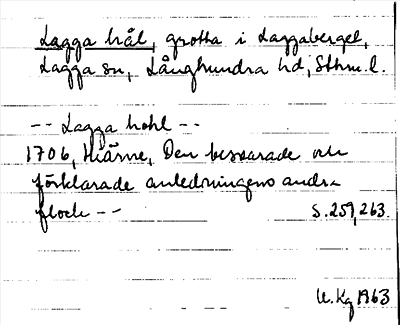 Lagga hål, grotta i Laggaberget,
Lagga sn, Långhundra hd, Sthm. l.
-- Lagga hohl --
1706, Hiärne, Den beswarade och
förklarade anledningens andra
flock -- S. 259, 263.
U. Kg 1963